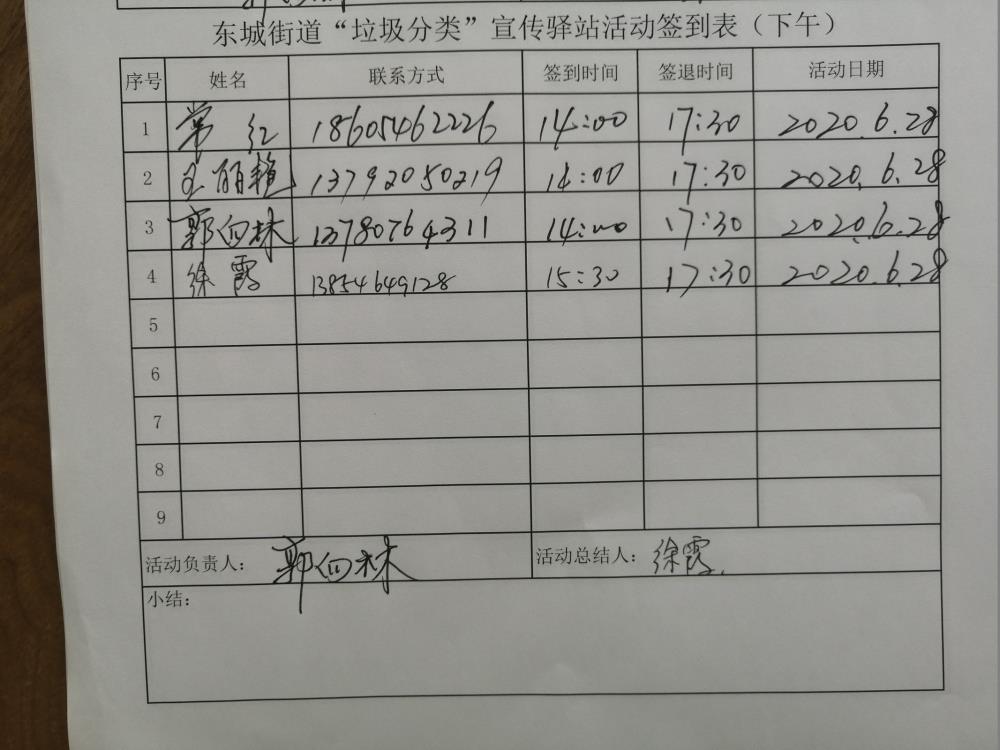 东城街道“垃圾分类”宣传驿站活动签到表（下午）
序号 姓名 联系方式 签到时间 签退时间 活动日期
1 常红 18605462226 14:00 17:30 2020.6.28
2 王丽艳 13792050219 14:00 17:30 2020.6.28
3 郭向林 13780764311 14:00 17:30 2020.6.28
4 徐霞 13854649128 15:30 17:30 2020.6.28
5
6
7
8
9
活动负责人：郭向林 活动总结人：徐霞
小结：